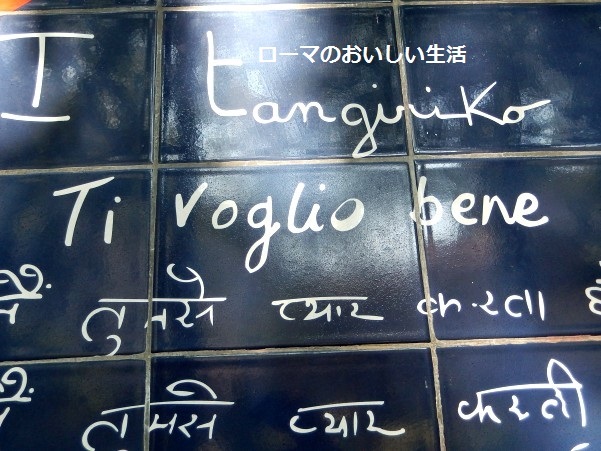 ローマのおいしい生活
I tangiriko
Ti voglio bene
तुमसे प्यार करता
तुमसे प्यार करती